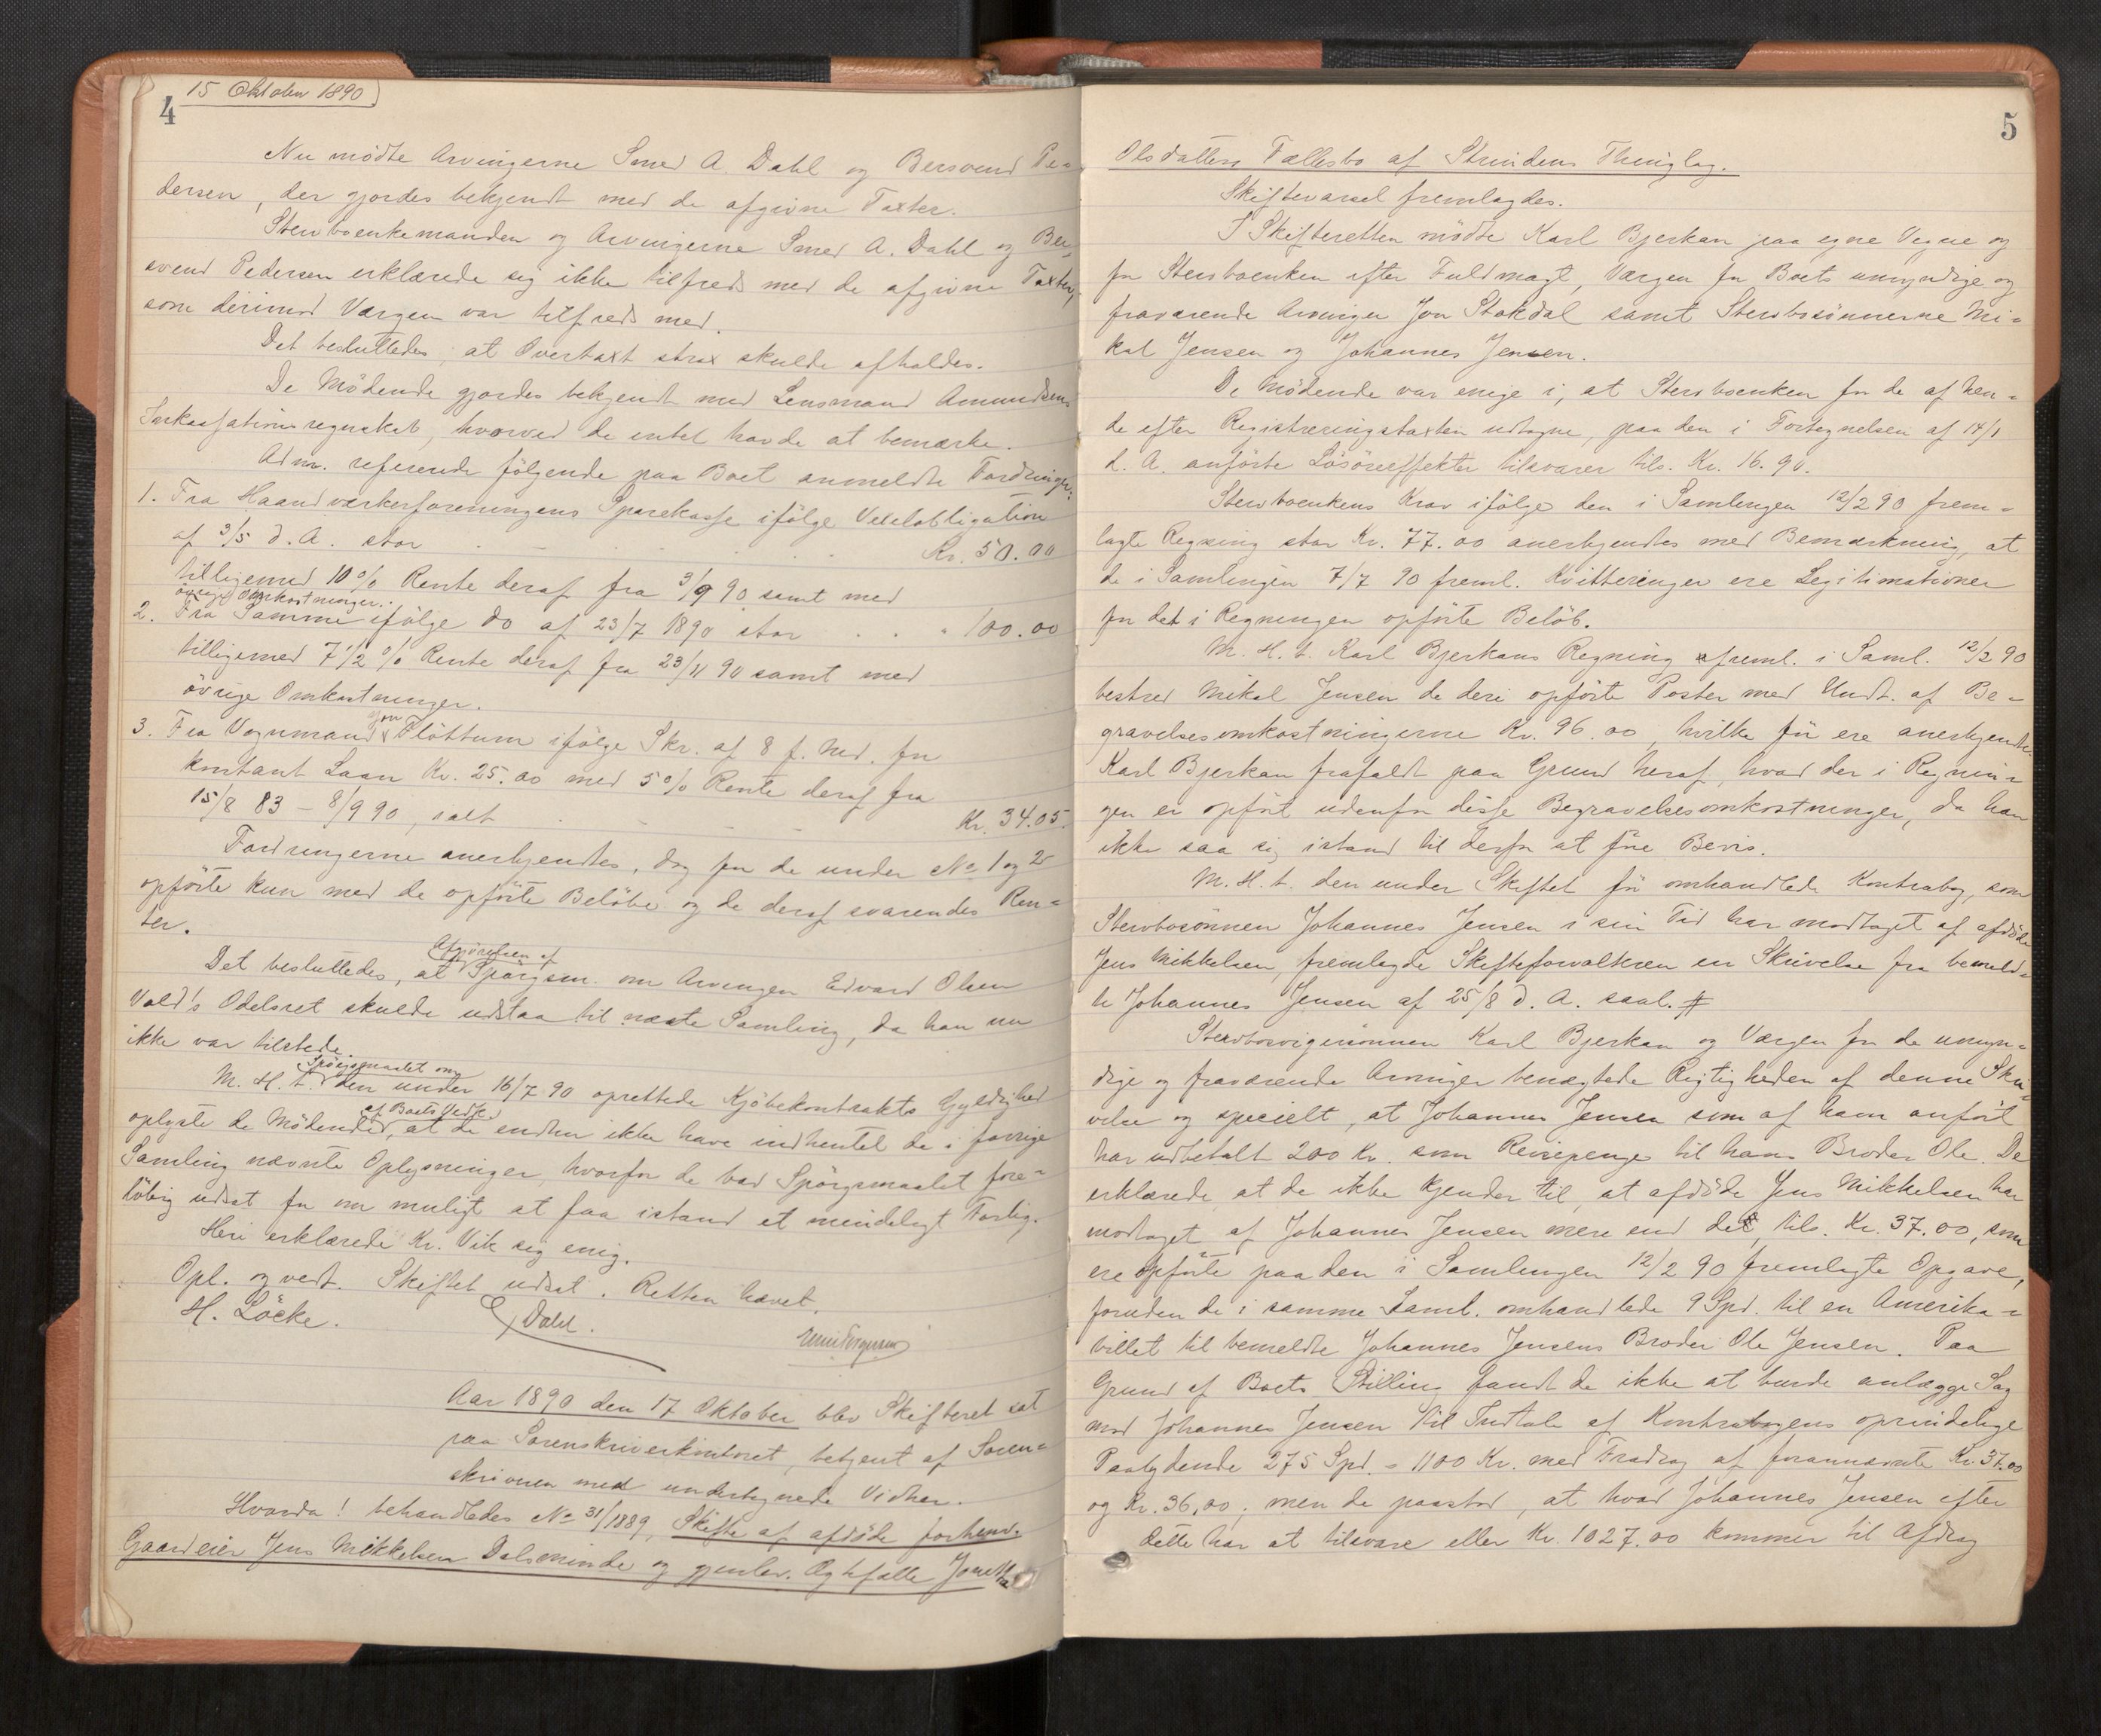 15 Oktober 1890
4
Nu mødte Arvingerne Smed A. Dahl og Bersvend Pe=
dersen, der gjordes bekjendt med de afgivne Taxter.
Stervboenkemanden og Arvingerne Smed A. Dahl og Ber=
svend Pedersen erklærede sig ikke tilfreds med de afgivne Taxter,
som derimod Værgen var tilfreds med.
Det besluttedes, at Overtaxt strax skulde afholdes.
De Mødende gjordes bekjendt med Lensmand Amundsens
Inkassationsregnskab, hvorved de intet havde at bemærke.
Adm. refererede følgende paa Boet anmeldte Fordringer:
1. Fra Haandværkerforeningens Sparekasse ifølge Vexelobligation
af 3/5 d. A. stor . . . . . . Kr. 50.00
tilligemed 10% Rente deraf fra 3/9 90 samt med
øvrige Omkostninger.
2. Fra Samme ifølge do af 23/7 1890 stor . . . " 100.00
tilligemed 7 1/2 % Rente deraf fra 23/11 90 samt med
øvrige Omkostninger.
3. Fra Vognmand Jon Fløttum ifølge Skr. af 8 f. Md. for
kontant Laan Kr. 25.00 med 5% Rente deraf fra
15/8 83 – 8/9 90, ialt . . . . Kr. 34.05.
Fordringerne anerkjendtes, dog for de under No 1 og 2
opførte kun med de opførte Beløbe og de deraf svarendes Ren=
ter.
Det besluttedes, at Afgjørelsen af Spørgsm. om Arvingen Edvard Olsen
Vold's Odelsret skulde udstaa til næste Samling, da han nu
ikke var tilstede.
M. H. t. Spørgsmaalet om den under 16/7 90 oprettede Kjøbekontrakts Gyldighed
oplyste de Mødende af Boets Vedk., at de endnu ikke have indhentet de i forrige
Samling nævnte Oplysninger, hvorfor de bad Spørgsmaalet fore=
løbig udsat for om muligt at faa istand et mindeligt Forlig.
Heri erklærede Kr. Vik sig enig.
Opl. og vedt. Skiftet udsat. Retten hævet.
H. Löcke. Dahl.
Aar 1890 den 17 Oktober blev Skifteret sat
paa Sorenskriverkontoret, betjent af Soren=
skriveren med undertegnede Vidner.
Hvorda! behandledes No 31/1889, Skifte af afdøde forhenv.
Gaardeier Jens Mikkelsen Dalsminde og gjenlev. Ægtefælle Jonetta
5
Olsdatters Fællesbo af Strindens Thinglag.
Skiftevarsel fremlagdes.
I Skifteretten mødte Karl Bjerkan paa egne Vegne og
for Stervboenken efter Fuldmagt, Værgen for Boets umyndige og
fraværende Arvinger Jon Stokdal samt Stervbosønnerne Mi=
kal Jensen og Johannes Jensen.
De Mødende var enige i, at Stervboenken for de af hen=
de efter Registreringstaxten udtagne, paa den i Fortegnelsen af 14/1
d. A. anførte Løsøreeffekter tilsvarer tils. Kr. 16.90.
Stervboenkens Krav ifølge den i Samlingen 12/2 90 frem=
lagte Regning stor Kr. 77.00 anerkjendtes med Bemærkning, at
de i Samlingen 7/7 90 freml. Kvitteringer ere Legitimationer
for det i Regningen opførte Beløb.
M. H. t. Karl Bjerkans Regning freml. i Saml. 12/2 90
bestred Mikal Jensen de deri opførte Poster med Undt. af Be=
gravelsesomkostningerne Kr. 96.00, hvilke før ere anerkjendte.
Karl Bjerkan frafaldt paa Grund heraf, hvad der i Regnin=
gen er opført udenfor disse Begravelsesomkostninger, da han
ikke saa sig istand til derfor at føre Bevis.
M. H. t. den under Skiftet før omhandlede Kontrabog, som
Stervbosønnen Johannes Jensen i sin Tid har modtaget af afdøde
Jens Mikkelsen, fremlagde Skifteforvalteren en Skrivelse fra bemeld=
te Johannes Jensen af 25/8 d. A. saal. #
Stervbosvigersønnen Karl Bjerkan og Værgen for de umyn=
dige og fraværende Arvinger benægtede Rigtigheden af denne Skri=
velse og specielt, at Johannes Jensen som af ham anført
har udbetalt 200 Kr. som Reisepenge til hans Broder Ole. De
erklærede, at de ikke kjender til, at afdøde Jens Mikkelsen har
modtaget af Johannes Jensen mere end det, tils. Kr. 37.00, som
ere opførte paa den i Samlingen 12/2 90 fremlagte Opgave,
foruden de i samme Saml. omhandlede 9 Spd. til en Amerika=
billet til bemeldte Johannes Jensens Broder Ole Jensen. Paa
Grund af Boets Stilling fandt de ikke at burde anlægge Sag
mod Johannes Jensen til Indtale af Kontrabogens oprindelige
Paalydende 275 Spd. = 1100 Kr. med Fradrag af forannævnte Kr. 37.00
og Kr. 36.00; men de paastod, at hvad Johannes Jensen efter
dette har at tilsvare eller Kr. 1027.00 kommer til Afdrag